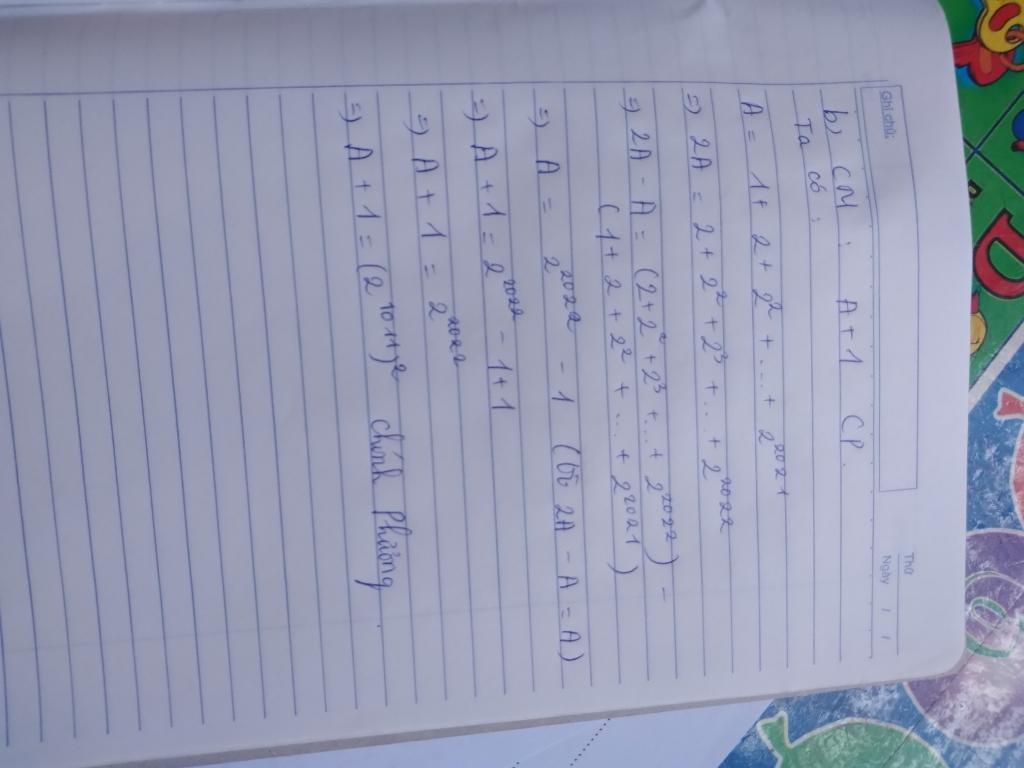 Ghi chú:
Thứ
Ngày / /
b, CM : A+1 CP.
Ta có :
A = 1+ 2 + 2² + .... + 2²⁰²¹
=) 2A = 2 + 2² + 2³ + ... + 2²⁰²²
=) 2A - A = (2+2²+2³+...+ 2²⁰²²) -
(1+ 2 + 2² + ... + 2²⁰²¹)
=) A = 2²⁰²² - 1 (Vì 2A - A = A)
=) A + 1 = 2²⁰²² - 1+1
=) A + 1 = 2²⁰²²
=) A + 1 = (2¹⁰¹¹)² chính phương.